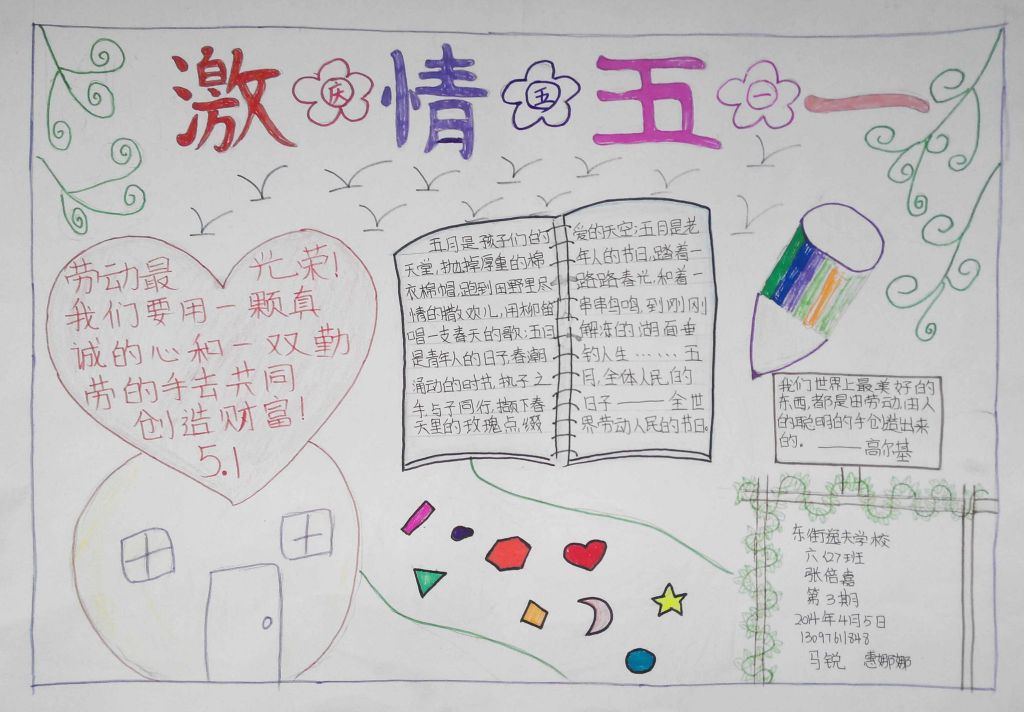 激情五一
庆五一
劳动最 光荣!
我们要用一颗真
诚的心和一双勤
劳的手去共同
创造财富!
5.1
五月是孩子们的
天堂,抛掉厚重的棉
衣棉帽,跑到田野里尽
情的撒欢儿,用柳笛
唱一支春天的歌;五月
是青年人的日子春潮
涌动的时节,执子之
手,与子同行,撷下春
天里的玫瑰点缀
爱的天空;五月是老
年人的节日,踏着一
路路春光,和着一
串串鸟鸣,到刚刚
解冻的湖面垂
钓人生……五
月,全体人民的
日子——全世
界劳动人民的节日。
我们世界上最美好的
东西,都是由劳动,由人
的聪明的手创造出来
的。——高尔基
东街逸夫学校
六(27)班
张倍嘉
第3期
2014年4月5日
13097611848
马锐 惠娜娜